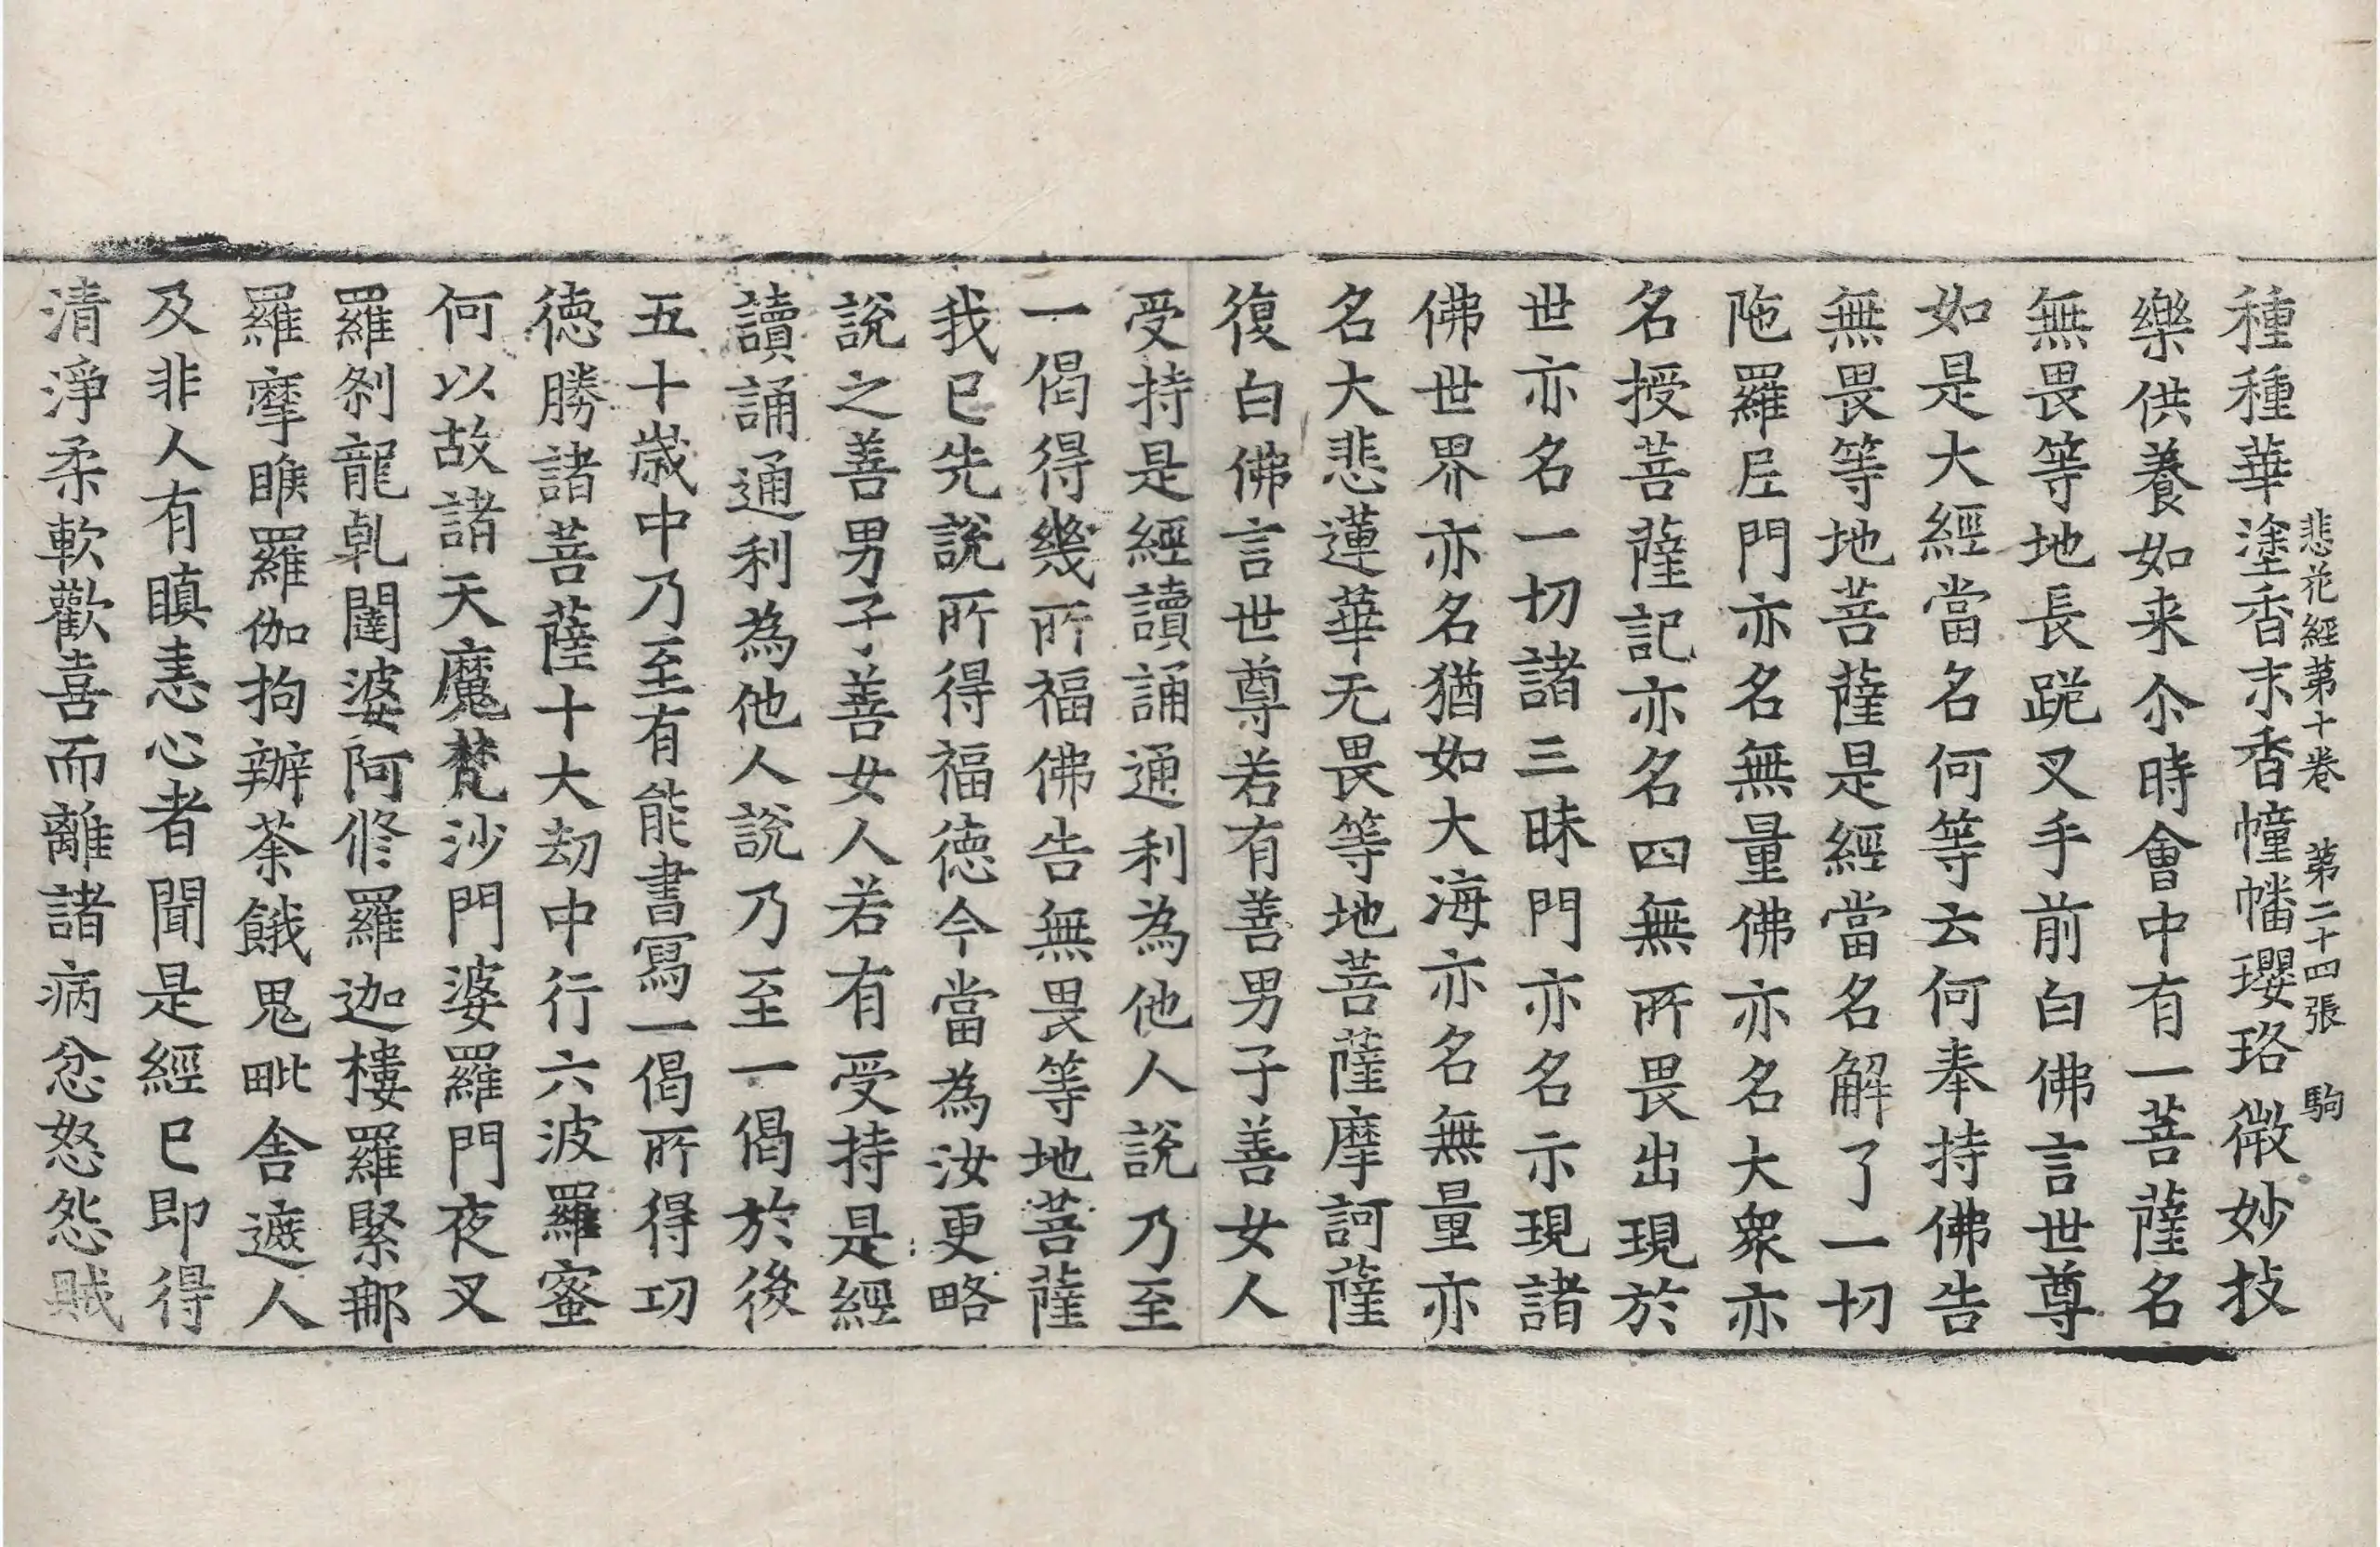 悲花經第十卷　第二十四張　駒
種種華塗香末香幢幡瓔珞微妙技
樂供養如来尒時會中有一菩薩名
無畏等地長跪叉手前白佛言世尊
如是大經當名何等云何奉持佛告
無畏等地菩薩是經當名解了一切
陁羅尼門亦名無量佛亦名大衆亦
名授菩薩記亦名四無所畏出現於
世亦名一切諸三昧門亦名示現諸
佛世界亦名猶如大海亦名無量亦
名大悲蓮華无畏等地菩薩摩訶薩
復白佛言世尊若有善男子善女人
受持是經讀誦通利為他人說乃至
一偈得幾所福佛告無畏等地菩薩
我已先說所得福德今當為汝更略
說之善男子善女人若有受持是經
讀誦通利為他人說乃至一偈於後
五十歲中乃至有能書寫一偈所得功
德勝諸菩薩十大劫中行六波羅蜜
何以故諸天魔梵沙門婆羅門夜叉
羅剎龍乹闥婆阿修羅迦樓羅緊那
羅摩睺羅伽拘辦荼餓鬼毗舍遮人
及非人有瞋恚心者聞是經已即得
清淨柔軟歡喜而離諸病忿怒怨賊